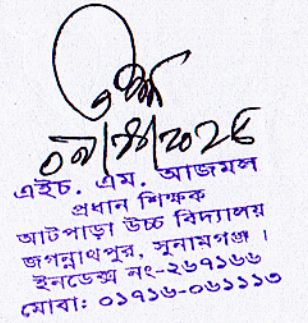 এইচ. এম. আজমল
প্রধান শিক্ষক
আটপাড়া উচ্চ বিদ্যালয়
জগন্নাথপুর, সুনামগঞ্জ ।
ইনডেক্স নং-২৬৭১৬৬
মোবা: ০১৭১৬-০৬১১১৩